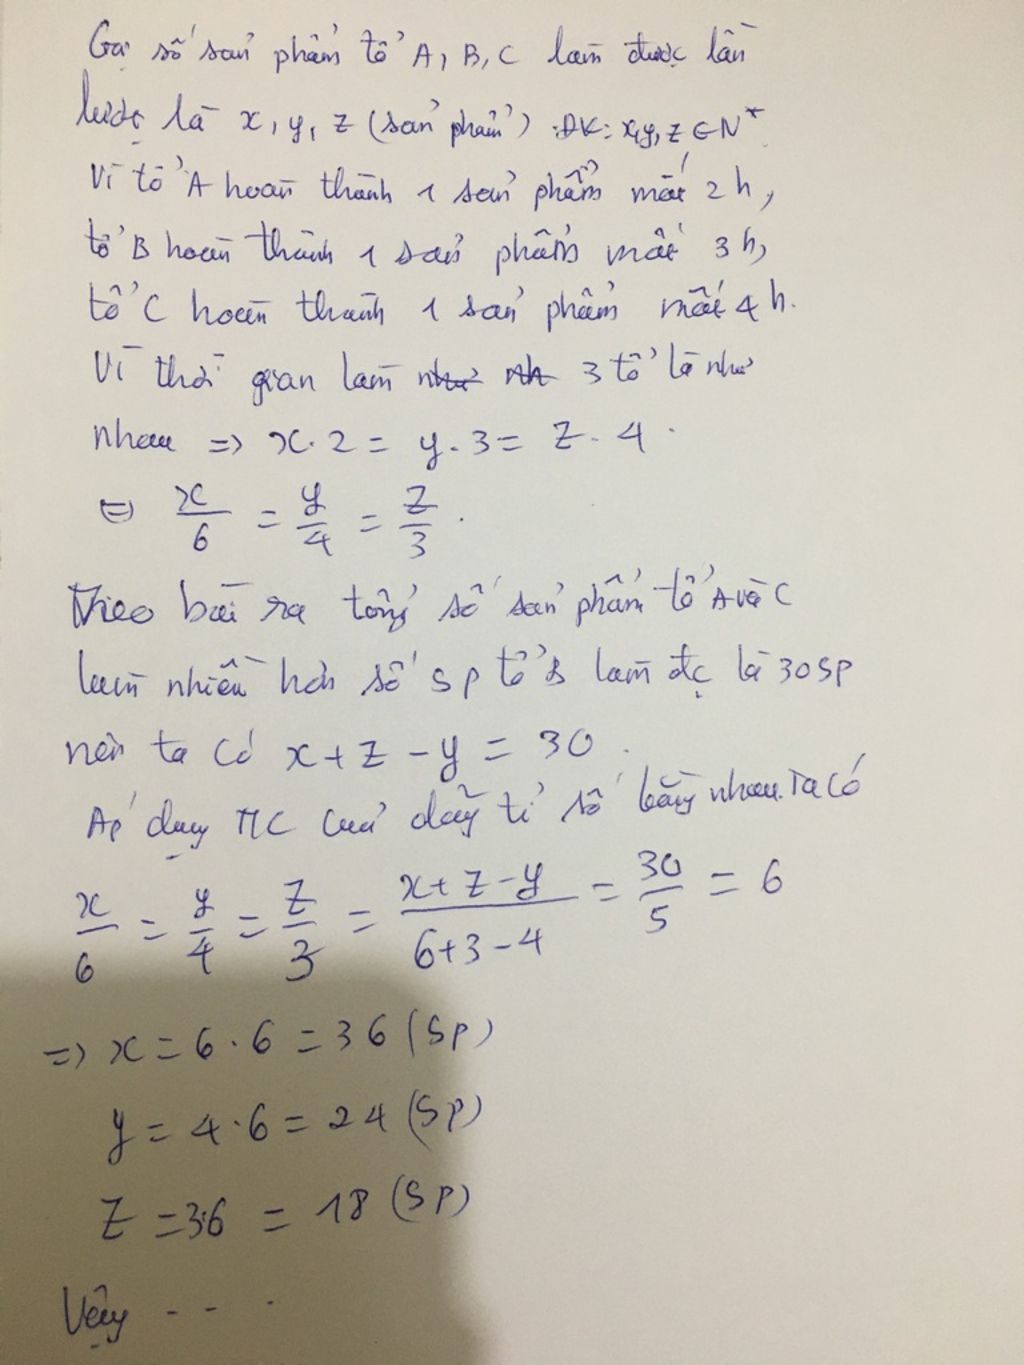 Gọi số sản phẩm tổ A, B, C làm được lần
lượt là x, y, z (sản phẩm) ĐK: x,y,z ∈ N*
Vì tổ A hoàn thành 1 sản phẩm mất 2h,
tổ B hoàn thành 1 sản phẩm mất 3h,
tổ C hoàn thành 1 sản phẩm mất 4h.
Vì thời gian làm 3 tổ là như
nhau => x.2 = y.3 = z.4.
<=> x/6 = y/4 = z/3.
Theo bài ra tổng số sản phẩm tổ A và C
làm nhiều hơn số sp tổ B làm đc là 30 sp
nên ta có x + z - y = 30.
Áp dụng T/C của dãy tỉ số bằng nhau. Ta có
x/6 = y/4 = z/3 = (x+z-y)/(6+3-4) = 30/5 = 6
=> x = 6.6 = 36 (SP)
y = 4.6 = 24 (SP)
z = 3.6 = 18 (SP)
Vậy - - .